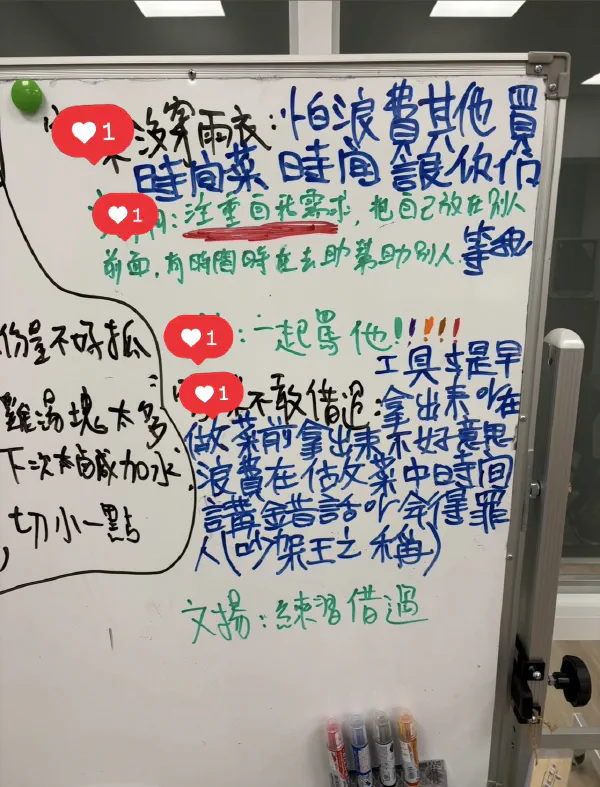 1
沒穿雨衣:怕浪費其他買
時間菜 時間 讓你們
1
:注重自我需求,把自己放在別人
等我
前面,有時間時在去助幫助別人
1
:一起罵他!!!!!
1
不敢借過:
工具該是早
拿出來
做菜前拿出來不好意思
浪費在 做菜中時間
講錯話 會得罪
人(吵架王之稱)
文揚:練習借過
份量不好抓
雞湯塊太多
下次太鹹加水
切小一點